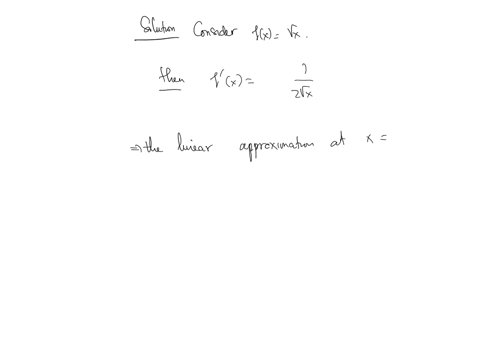 Solution Consider f(x) = √x.
then f'(x) = 1/2√x
⇒ the linear approximation at x =